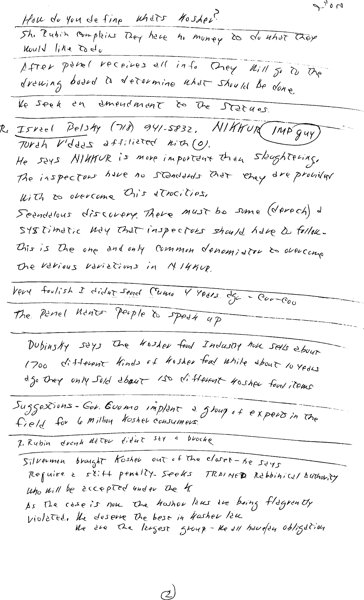 How do you define whats Kosher?
Sh. Rubin complains they have no money to do what they
would like to do
After panel receives all info they will go to the
drewing board to determine what should be done
We seek an amendment to the Statues
R. Israel Belsky (718) 941-5832. NIKKUR IMP guy
Torah V'daas affiliated with (O).
He says NIKKUR is more important than slaughtering.
The inspectors have no standards that they are provided
with to overcome this atrocities.
Scandalous discovery. There must be some (derech) a
systimatic way that inspectors should have to follow-
this is the one and only common denominator to overcome
the various variations in NIKKUR.
Very foolish I didnt send Cuomo 4 years ago -
The Panel wants people to speak up
Dubinsky says the Kosher food Industry now sells about
1700 different kinds of Kosher food while about 10 years
ago they only sold about 150 different Kosher food items
Suggestions - Gov. Cuomo implant a group of experts in the
field for 6 million Kosher consumers.
R. Rubin drank water didnt say a broche
Silverman brought Kosher out of the closet - he says
Require a stiff penalty. Seeks TRAINED Rabbinical Authority
who will be accepted under the
As the case is now the Kosher laws are being flagrently
violated. We deserve the best in Kosher law
We are the largest group - We all have an obligation
(2)